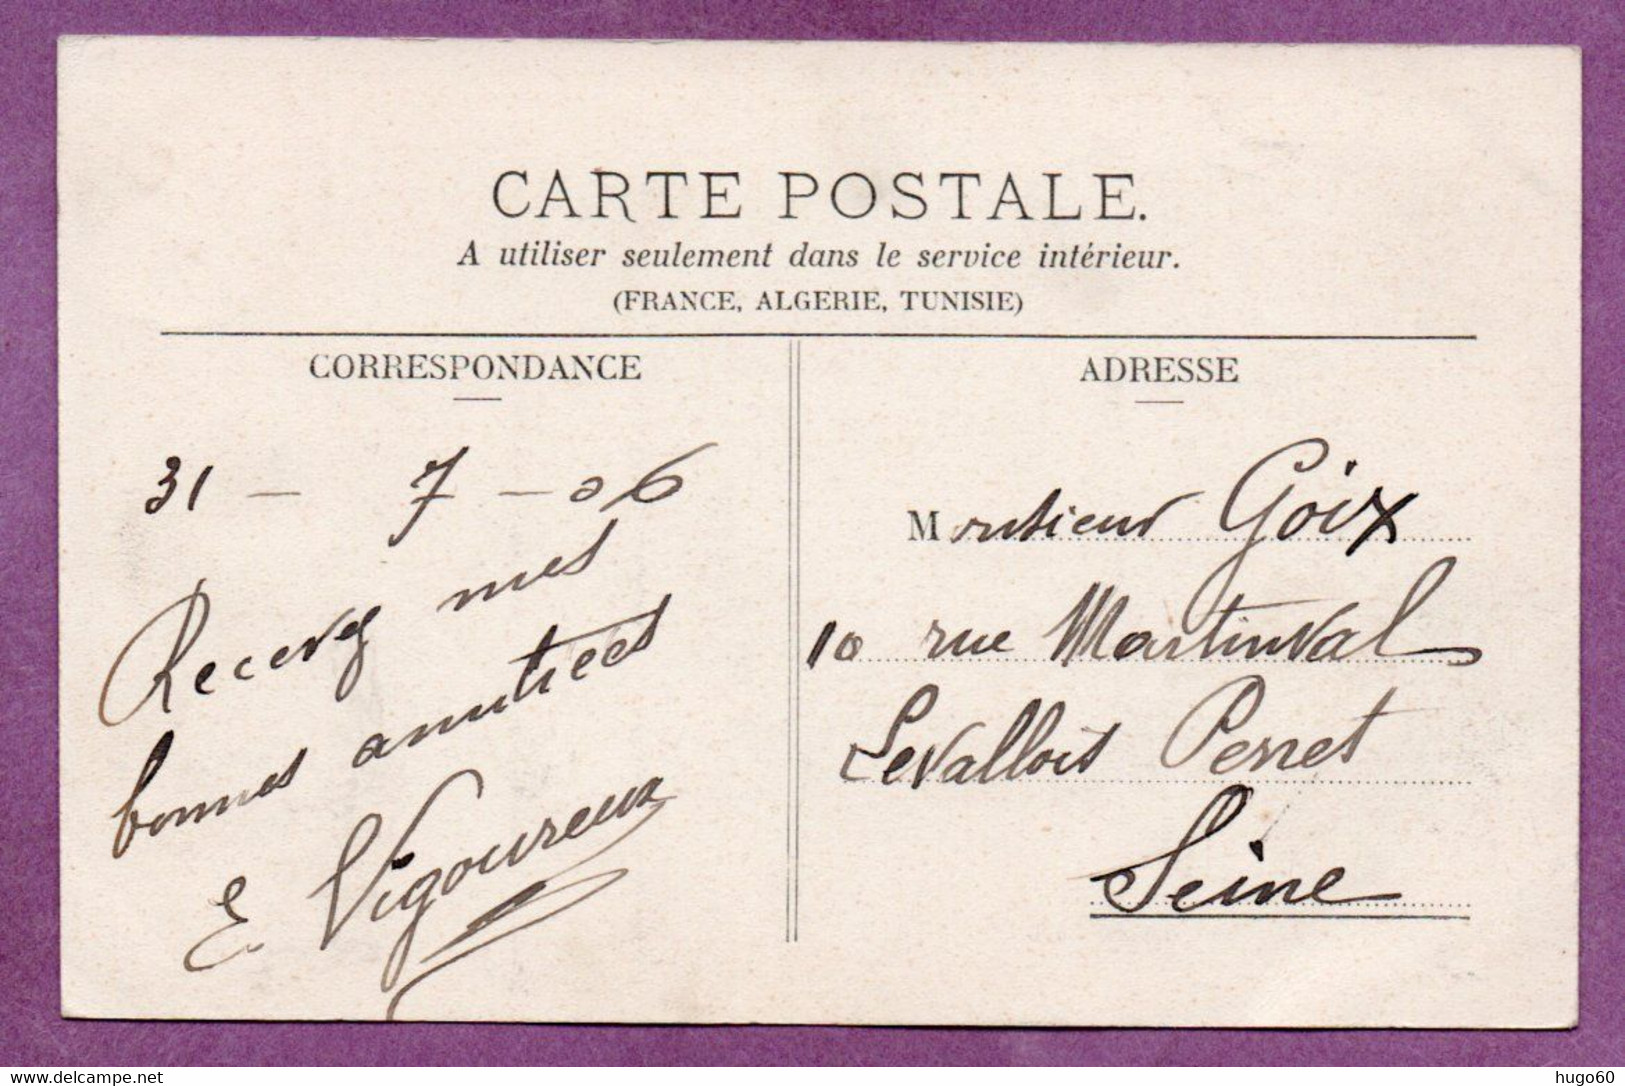 CARTE POSTALE.
A utiliser seulement dans le service intérieur.
(FRANCE, ALGERIE, TUNISIE)
CORRESPONDANCE
31 - 7 - 06
Recevez mes
bonnes amitiées
E Vigoureux
ADRESSE
Monsieur Goix
10 rue Martinval
Levallois Perret
Seine
www.delcampe.net
hugo60